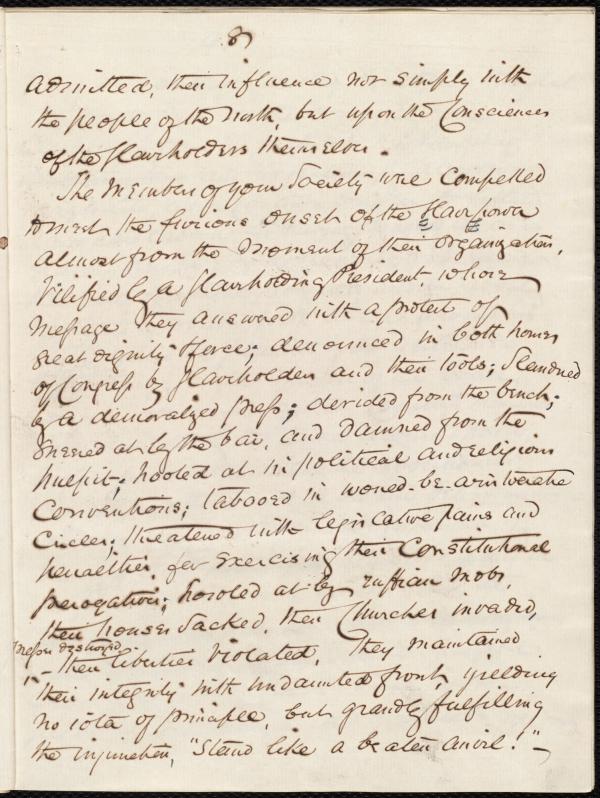 8
admitted, their influence not simply with
the people of the North, but upon the Consciences
of the slaveholders themselves.
The Members of your Society were compelled
to meet the furious onset of the slave power
almost from the moment of their organization.
Vilified by a slaveholding President, whose
Message they answered with a protest of
great dignity & force; denounced in both houses
of Congress by slaveholders and their tools; slandered
by a demoralized press; derided from the bench;
sneered at by the bar, and damned from the
pulpit; hooted at in political and religious
Conventions; tabooed in would-be-aristocratic
Circles; threatened with legislative pains and
penalties, for exercising their Constitutional
prerogatives; howled at by ruffian mobs,
their houses sacked, their Churches invaded,
presses destroyed
- their liberties violated, They maintained
their integrity with undaunted front, yielding
no iota of principle, but grandly fulfilling
the injunction, "Stand like a beaten anvil!" -